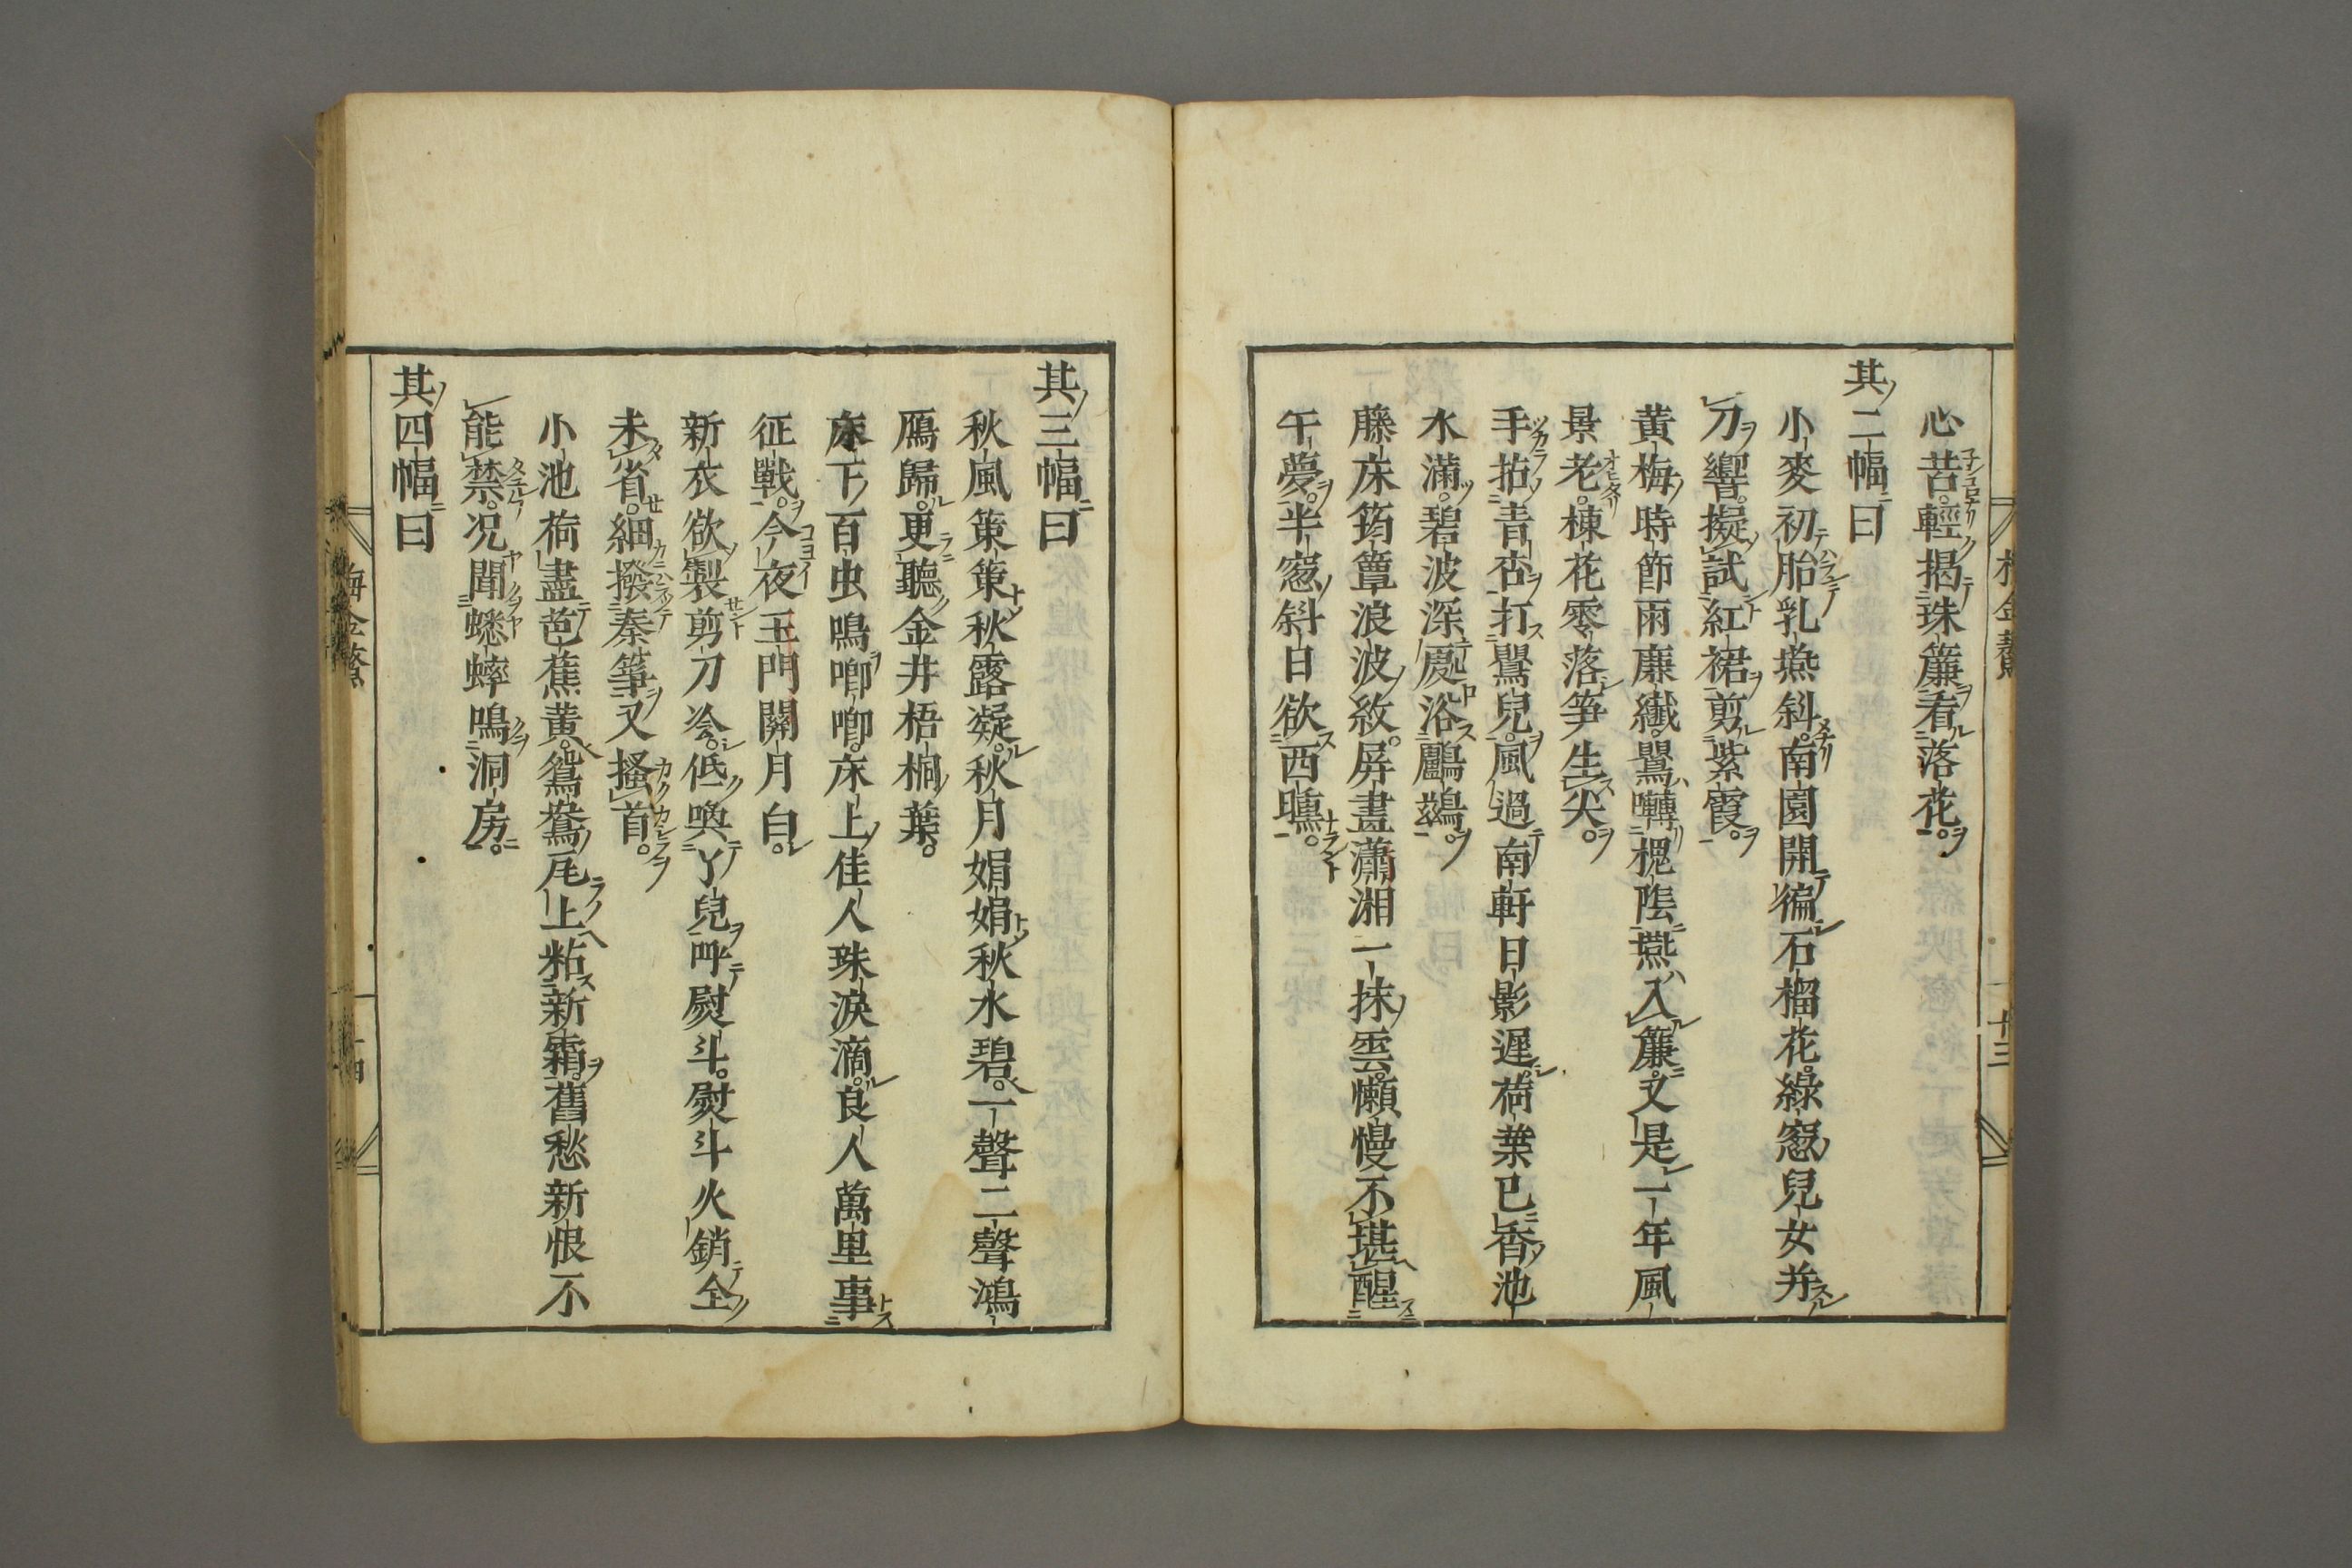 心苦輕揭珠簾看落花
其二幅曰
小麥初胎乳燕斜南園開徧石榴花綠窓兒女并
刀響擬試紅裙剪紫霞
黃梅時節雨廉纖鸎囀槐陰燕入簾又是一年風
景老楝花零落笋生尖
手拈青杏打鸎兒風過南軒日影遲荷葉已香池
水滿碧波深處浴鸕鶿
藤床筠簟浪波紋屏畫瀟湘一抹雲懶慢不堪醒
午夢半窓斜日欲西曛
梅金鰲
十三
其三幅曰
秋風策策秋露凝秋月娟娟秋水碧一聲二聲鴻
鴈歸更聽金井梧桐葉
床下百虫鳴唧唧床上佳人珠淚滴良人萬里事
征戰今夜玉門關月白
新衣欲製剪刀冷低喚丫兒呼熨斗熨斗火銷全
未省細撥秦箏又搔首
小池荷盡芭蕉黃鴛鴦尾上粘新霜舊愁新恨不
能禁況聞蟋蟀鳴洞房
其四幅曰
梅金鰲
十四